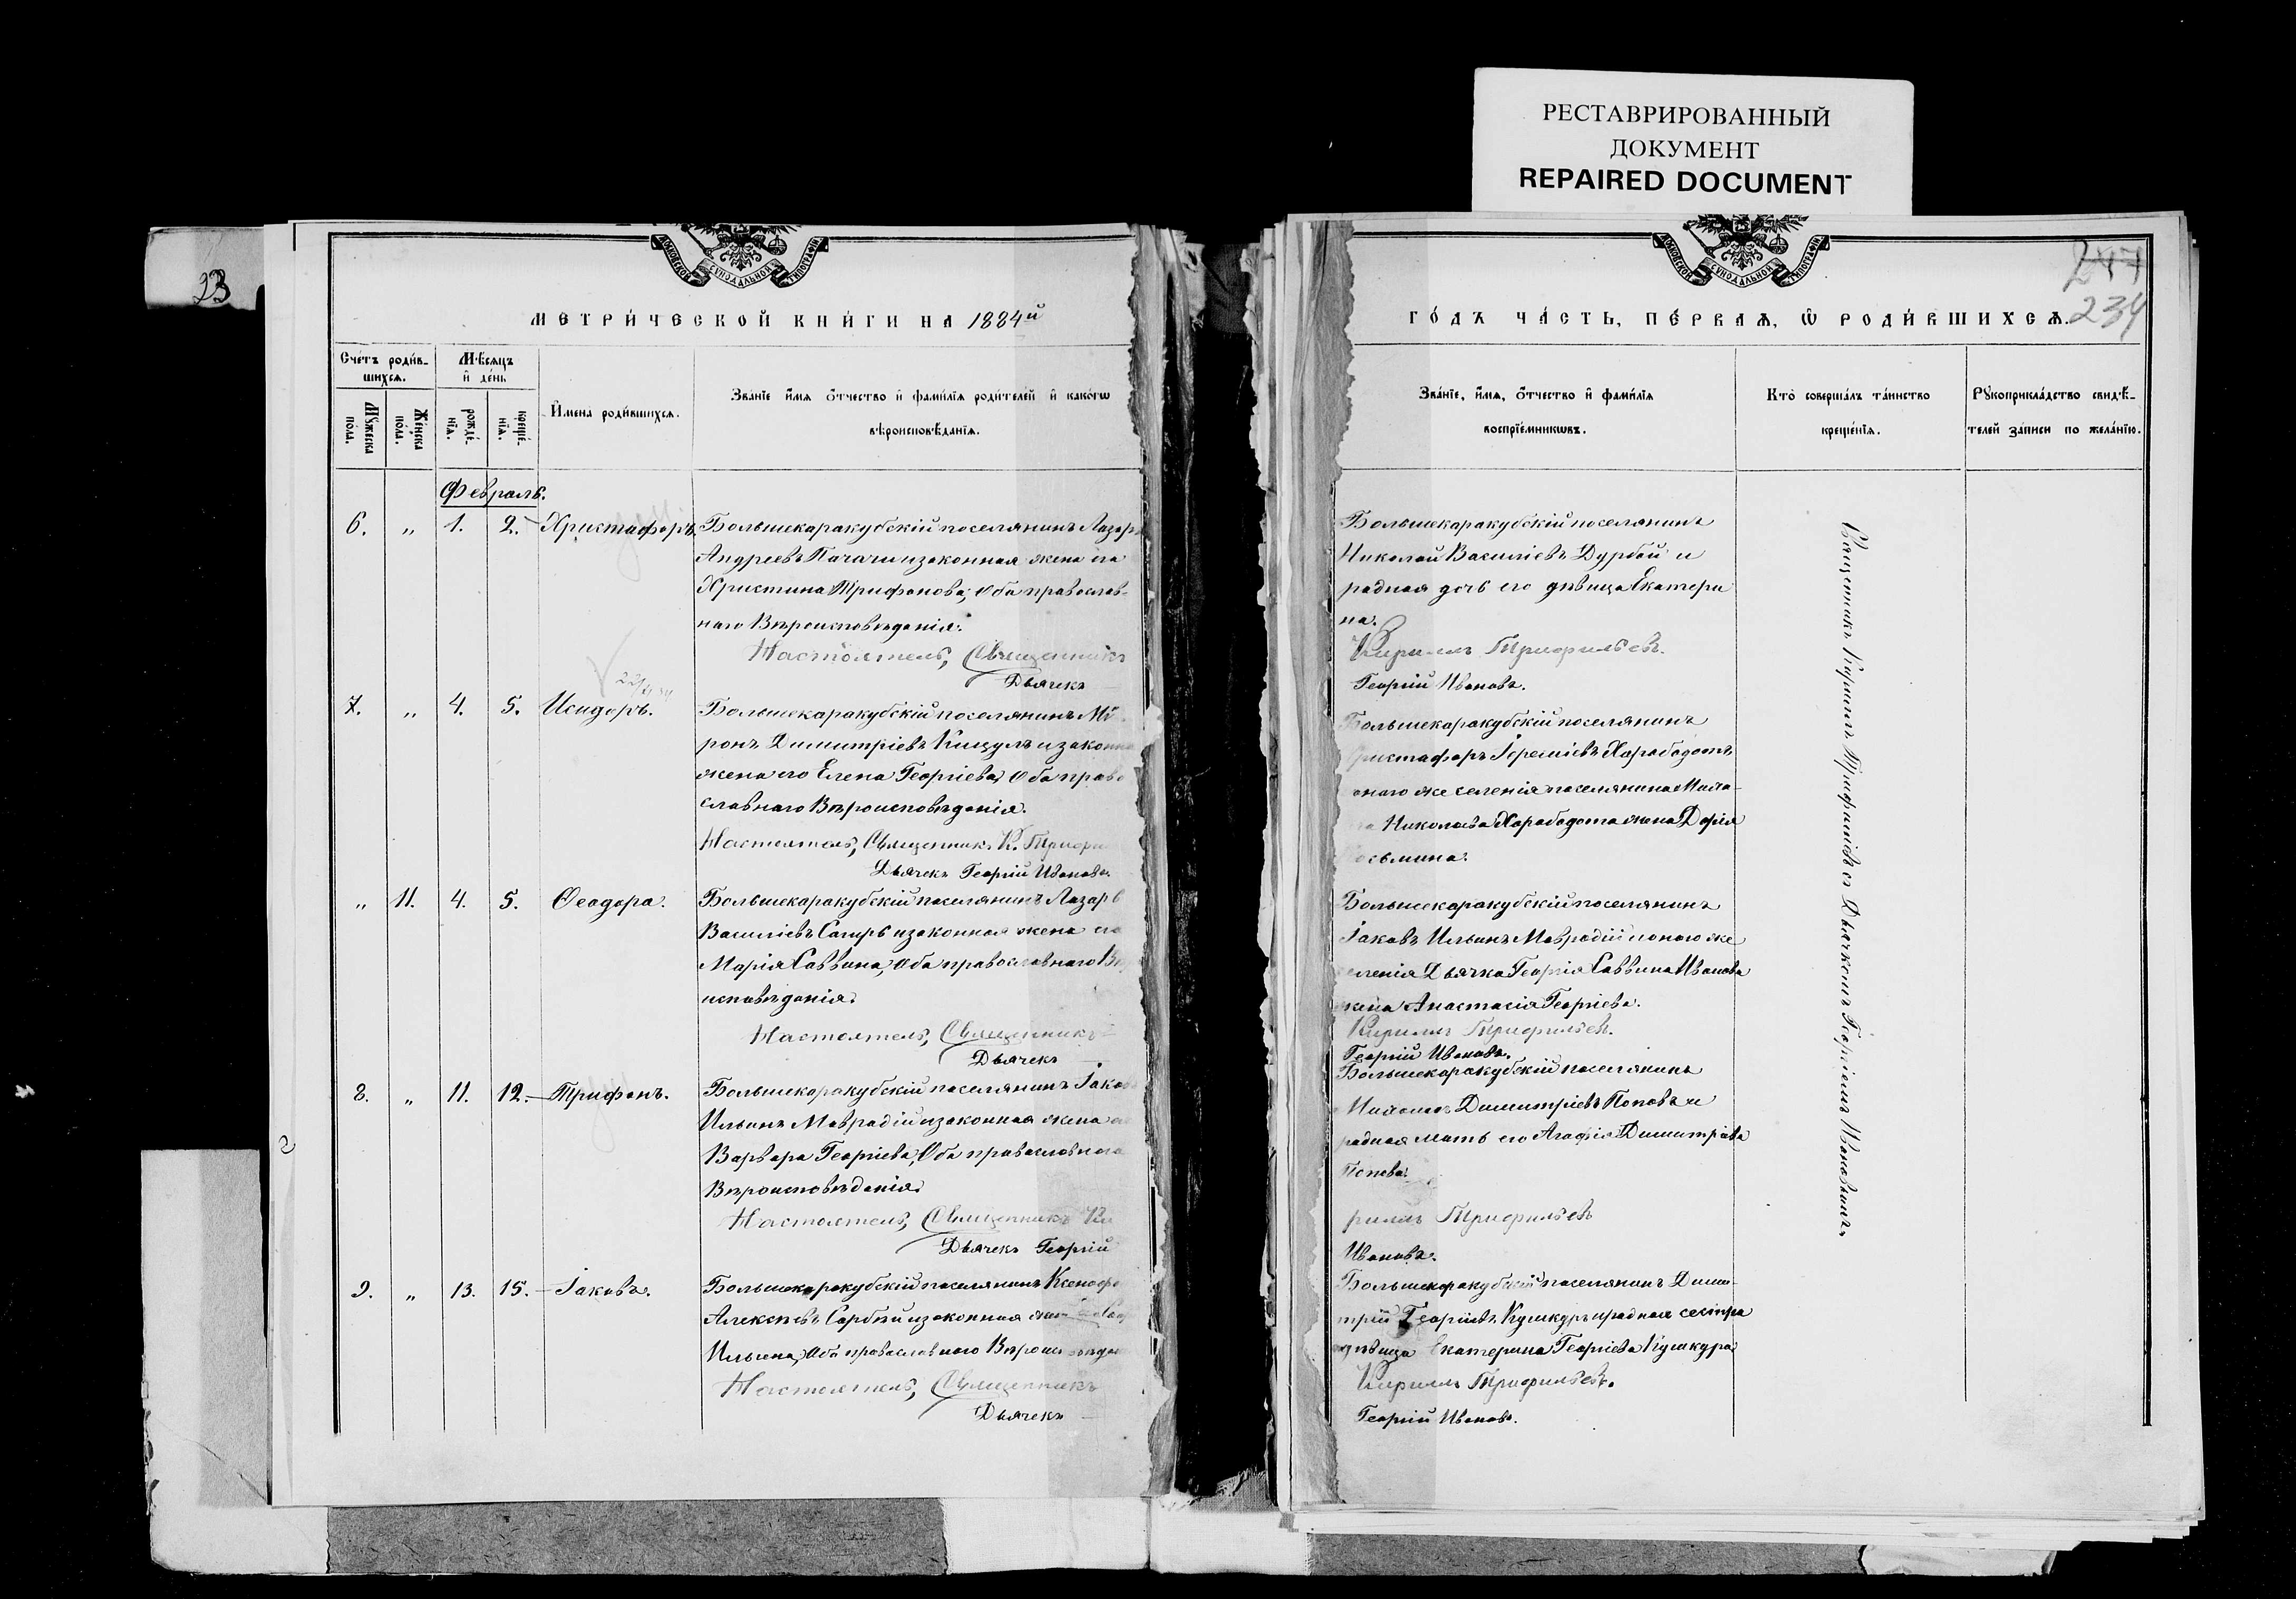 РЕСТАВРИРОВАННЫЙ
ДОКУМЕНТ
REPAIRED DOCUMENT
23
МОСКОВСКОЙ СѴНОДАЛЬНОЙ ТИПОГРАФІИ
МЕТРИ́ЧЕСКОЙ КНИ́ГИ НА 1884й
Сче́тъ роди́в-
шихсѧ.
Мѣ́сѧцъ
и҆ де́нь
Мꙋ́жеска
по́ла.
Же́нска
по́ла.
рожде́-
нїѧ.
креще́-
нїѧ.
И҆мена̀ роди́вшихсѧ.
Зва́нїе и҆́мѧ ѻ҆́тчество и҆ фами́лїѧ роди́телей и҆ како́гѡ
вѣроисповѣ́данїѧ.
Февраль.
6. „ 1. 2. Христафоръ. Большекаракубскій поселянинъ Лазарь
Андреевъ Пачачи и законная жена его
Христина Трифонова; оба православ-
наго Вѣроисповѣданія.
Настоятель, Священникъ
Дьячекъ
7. „ 4. 5. Исидоръ. Большекаракубскій поселянинъ Ми-
ронъ Димитріевъ Кицулъ и законная
жена его Елена Георгіева, оба право
славнаго Вѣроисповѣданія.
Настоятель, Священникъ К. Трифи
Дьячекъ Георгій Ивановъ.
„ 11. 4. 5. Ѳеодора. Большекаракубскій поселянинъ Лазарь
Василіевъ Сагирь и законная жена его
Марія Саввина, оба православнаго Вѣ
исповѣданія.
Настоятель, Священникъ
Дьячекъ
8. „ 11. 12. Трифонъ. Большекаракубскій поселянинъ Іаковъ
Ильинъ Маврадій и законная жена его
Варвара Георгіева, оба православнаго
Вѣроисповѣданія.
Настоятель, Священникъ Ки
Дьячекъ Георгій
9. „ 13. 15. Іаковъ. Большекаракубскій поселянинъ Ксенофо
Алексѣевъ Сарбей и законная
Ильина, оба православнаго Вѣроисповѣдан
Настоятель, Священникъ
Дьячекъ
247
234
МОСКОВСКОЙ СѴНОДАЛЬНОЙ ТИПОГРАФІИ
ГО́ДЪ ЧА́СТЬ, ПЕ́РВАѦ, Ѡ҆ РОДИ́ВШИХСѦ.
Зва́нїе, и҆́мѧ, ѻ҆́тчество и҆ фами́лїѧ
воспрїе́мникѡвъ.
Кто̀ соверша́лъ та́инство
креще́нїѧ.
Рꙋкоприкла́дство свидѣ́-
телей за́писи по жела́нїю.
Большекаракубскій поселянинъ
Николай Василіевъ Дурбай и
родная дочь его дѣвица Екатери
на.
Кириллъ Трифильевъ.
Георгій Ивановъ.
Большекаракубскій поселянинъ
Христафоръ Іереміевъ Харабадотъ
онаго же селенія поселянина
Николаева Харабадота жена Дарія
Косьмина.
Большекаракубскій поселянинъ
Іаковъ Ильинъ Маврадій и онаго же
селенія Дьячка Георгія Саввина Иванова
жена Анастасія Георгіева.
Кириллъ Трифильевъ.
Георгій Ивановъ.
Большекаракубскій поселянинъ
Димитріевъ Поповъ и
родная мать его Агафія Димитріева
Попова.
риллъ Трифильевъ
Ивановъ.
Большекаракубскій поселянинъ Дими-
трій Георгіевъ Кушкуръ и родная сестра
дѣвица Екатерина Георгіева Кушкура
Кириллъ Трифильевъ.
Георгій Ивановъ.
Священникъ Кириллъ Трифильевъ съ Дьячкомъ Георгіемъ Ивановымъ.